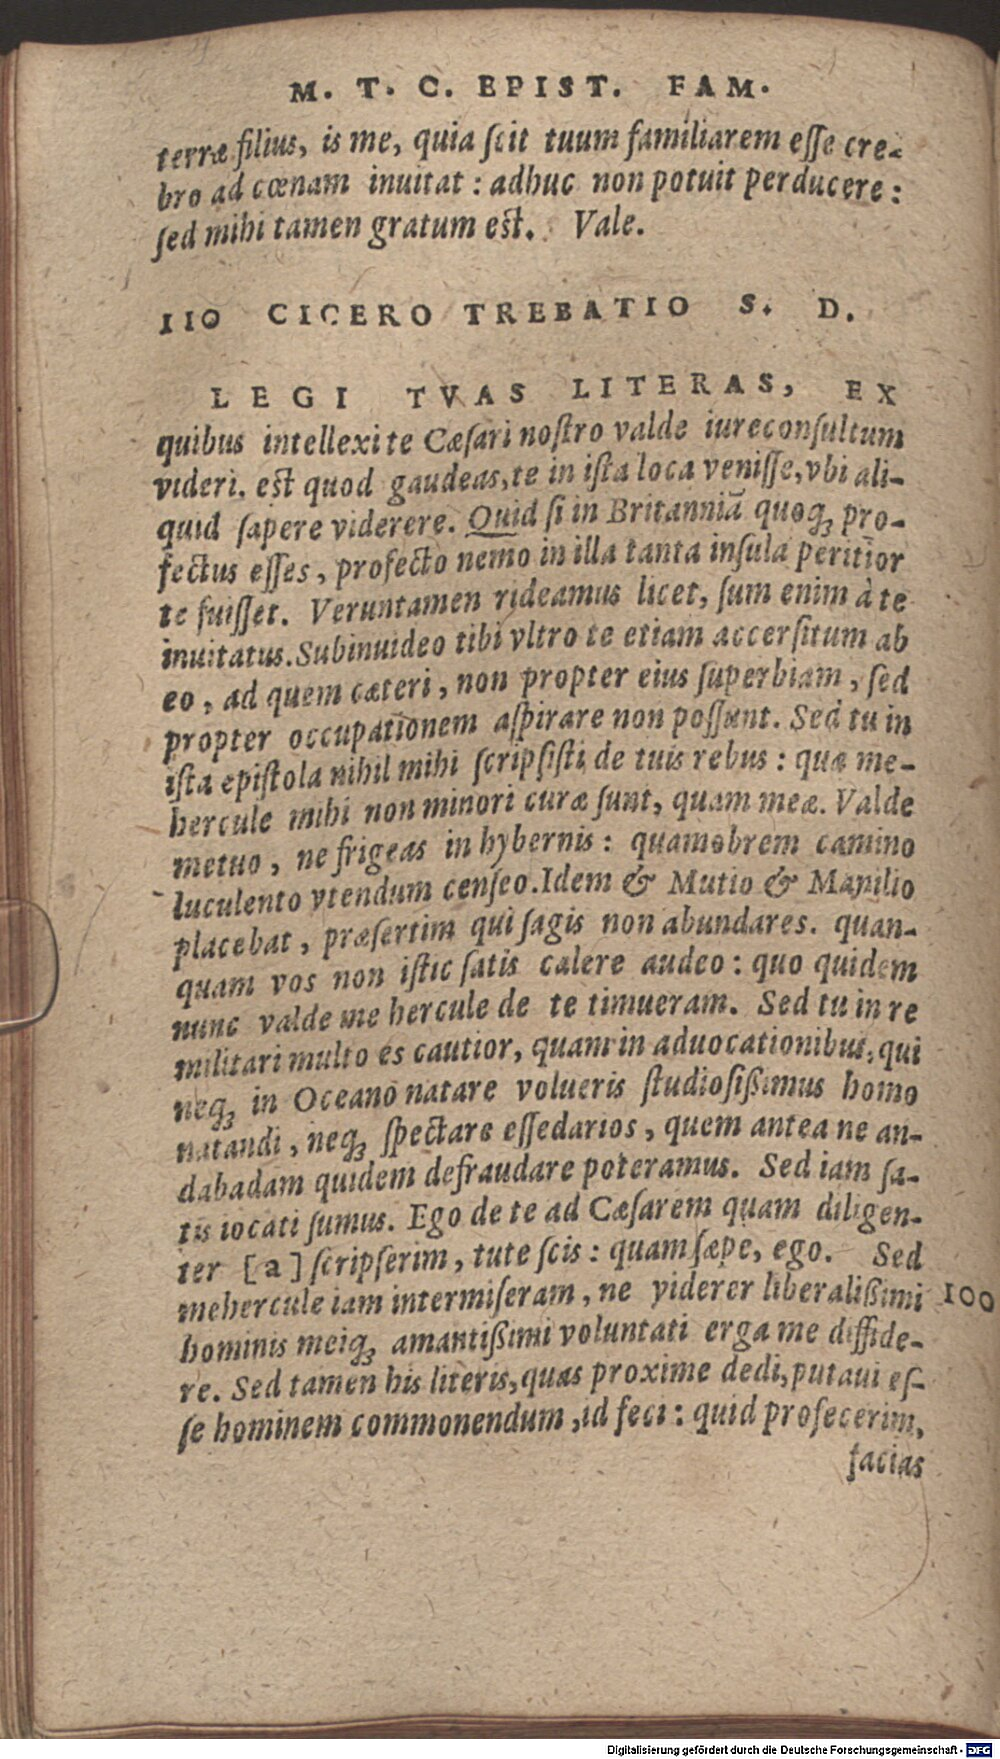 M. T. C. EPIST. FAM.
terræ filius, is me, quia ſcit tuum familiarem eſſe cre-
bro ad cœnam inuitat : adhuc non potuit perducere :
ſed mihi tamen gratum eſt. Vale.
110 CICERO TREBATIO S. D.
LEGI TVAS LITERAS, EX
quibus intellexi te Cæſari noſtro valde iureconſultum
videri. eſt quod gaudeas, te in iſta loca veniſſe, vbi ali-
quid ſapere viderere. Quid ſi in Britanniā quoqꝫ pro-
fectus eſſes, profecto nemo in illa tanta inſula peritior
te fuiſſet. Veruntamen rideamus licet, ſum enim à te
inuitatus. Subinuideo tibi vltro te etiam accerſitum ab
eo, ad quem cæteri, non propter eius ſuperbiam, ſed
propter occupationem aſpirare non poſſunt. Sed tu in
iſta epiſtola nihil mihi ſcripſiſti de tuis rebus : quæ me-
hercule mihi non minori curæ ſunt, quam meæ. Valde
metuo, ne frigeas in hybernis : quamobrem camino
luculento vtendum cenſeo. Idem & Mutio & Manilio
placebat, præſertim qui ſagis non abundares. quan-
quam vos non iſtic ſatis calere audeo : quo quidem
nunc valde me hercule de te timueram. Sed tu in re
militari multo es cautior, quam in aduocationibus, qui
neqꝫ in Oceano natare volueris ſtudioſißimus homo
natandi, neqꝫ ſpectare eſſedarios, quem antea ne an-
dabadam quidem defraudare poteramus. Sed iam ſa-
tis iocati ſumus. Ego de te ad Cæſarem quam diligen-
ter [a] ſcripſerim, tute ſcis : quam ſæpe, ego. Sed
mehercule iam intermiſeram, ne viderer liberalißimi 100
hominis meiqꝫ amantißimi voluntati erga me diffide-
re. Sed tamen his literis, quas proxime dedi, putaui eſ-
ſe hominem commonendum, id feci : quid profecerim,
facias
Digitalisierung gefördert durch die Deutsche Forschungsgemeinschaft - DFG